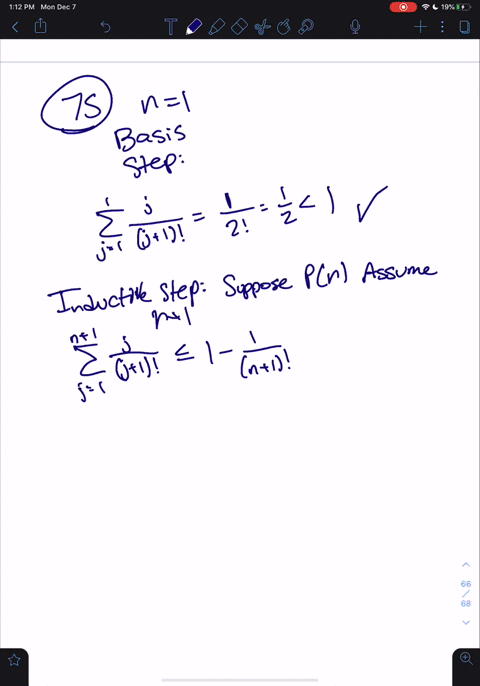 1:12 PM Mon Dec 7
19%
75 n=1
Basis
Step:
\sum_{j=1}^{1} \frac{j}{(j+1)!} = \frac{1}{2!} = \frac{1}{2} < 1 ✓
Inductive Step: Suppose P(n) Assume
n+1
\sum_{j=1}^{n+1} \frac{j}{(j+1)!} ≤ 1 - \frac{1}{(n+1)!}
66
/
68